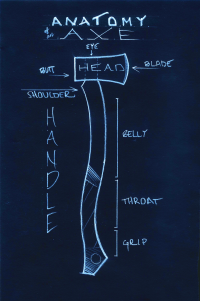 ANATOMY
of an AXE
EYE
BUT
HEAD
BLADE
SHOULDER
HANDLE
BELLY
THROAT
GRIP